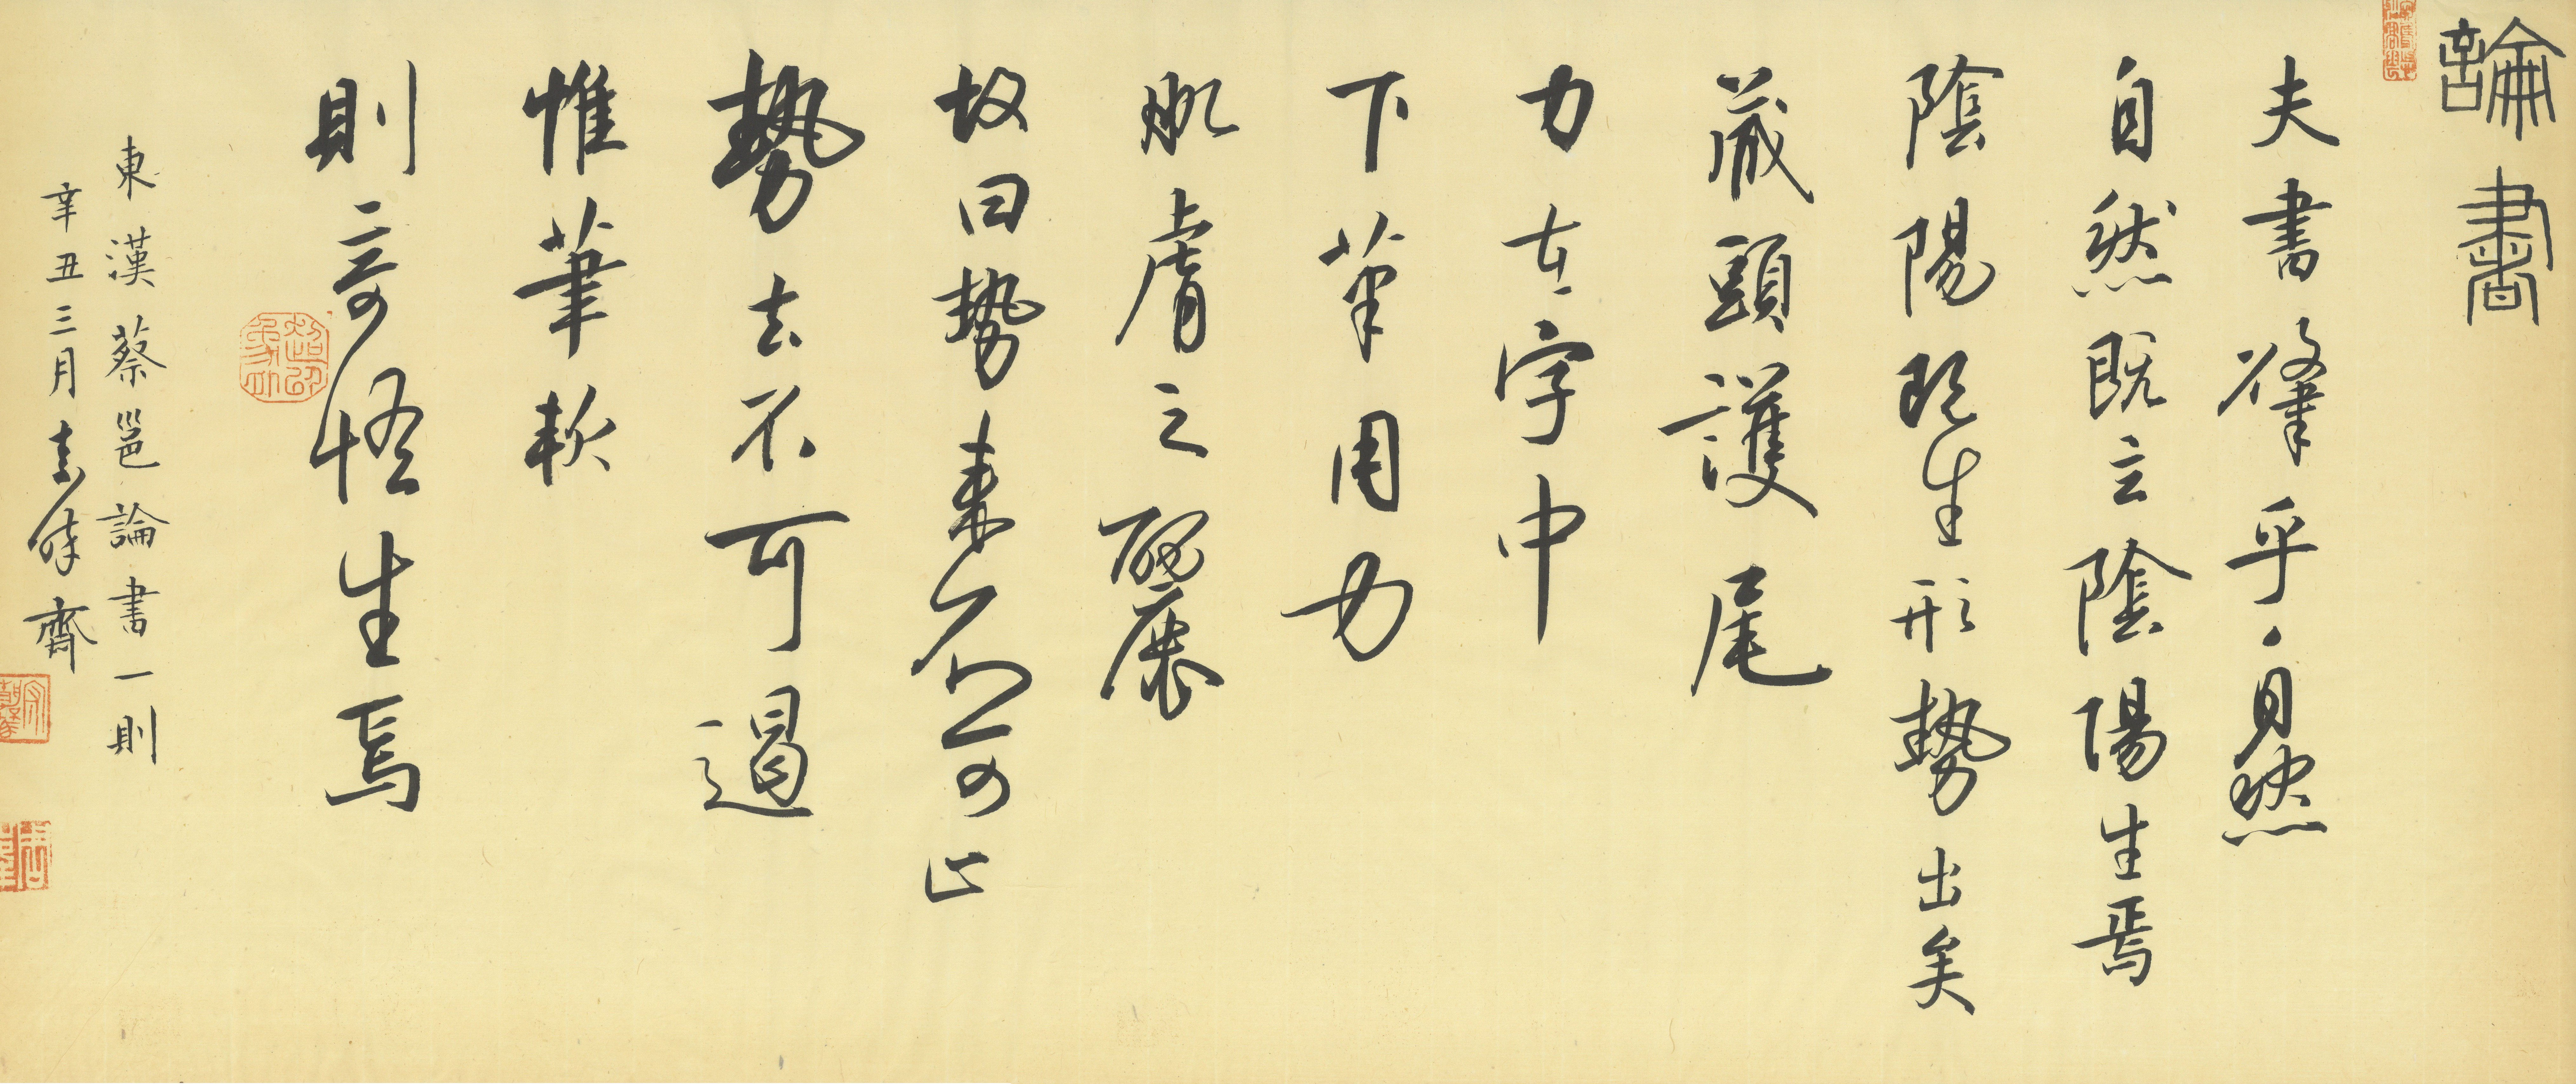 論書
夫書肇乎自然
自然既立陰陽生焉
陰陽既生形勢出矣
藏頭護尾
力在字中
下筆用力
肌膚之麗
故曰勢來不可止
勢去不可遏
惟筆軟
則奇怪生焉
東漢蔡邕論書一則
辛丑三月
齋